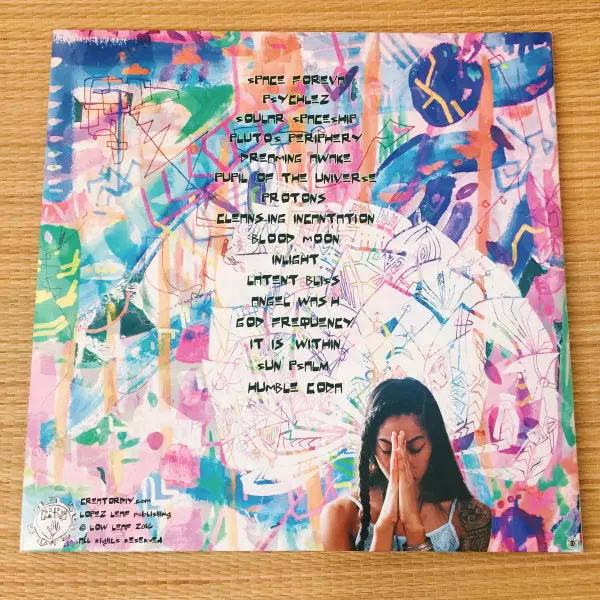 SPACE FOREVA
PSYCHLEZ
SOULAR SPACESHIP
PLUTOS PERIPHERY
DREAMING AWAKE
PUPIL OF THE UNIVERSE
PROTONS
CLEANSING INCANTATION
BLOOD MOON
INLIGHT
LATENT BLISS
ANGEL WASH
GOD FREQUENCY
IT IS WITHIN
SUN PSALM
HUMBLE CODA
CREATORDIY.com
LOPEZ LEAF publishing
© LOW LEAF 2016
ALL RIGHTS RESERVED